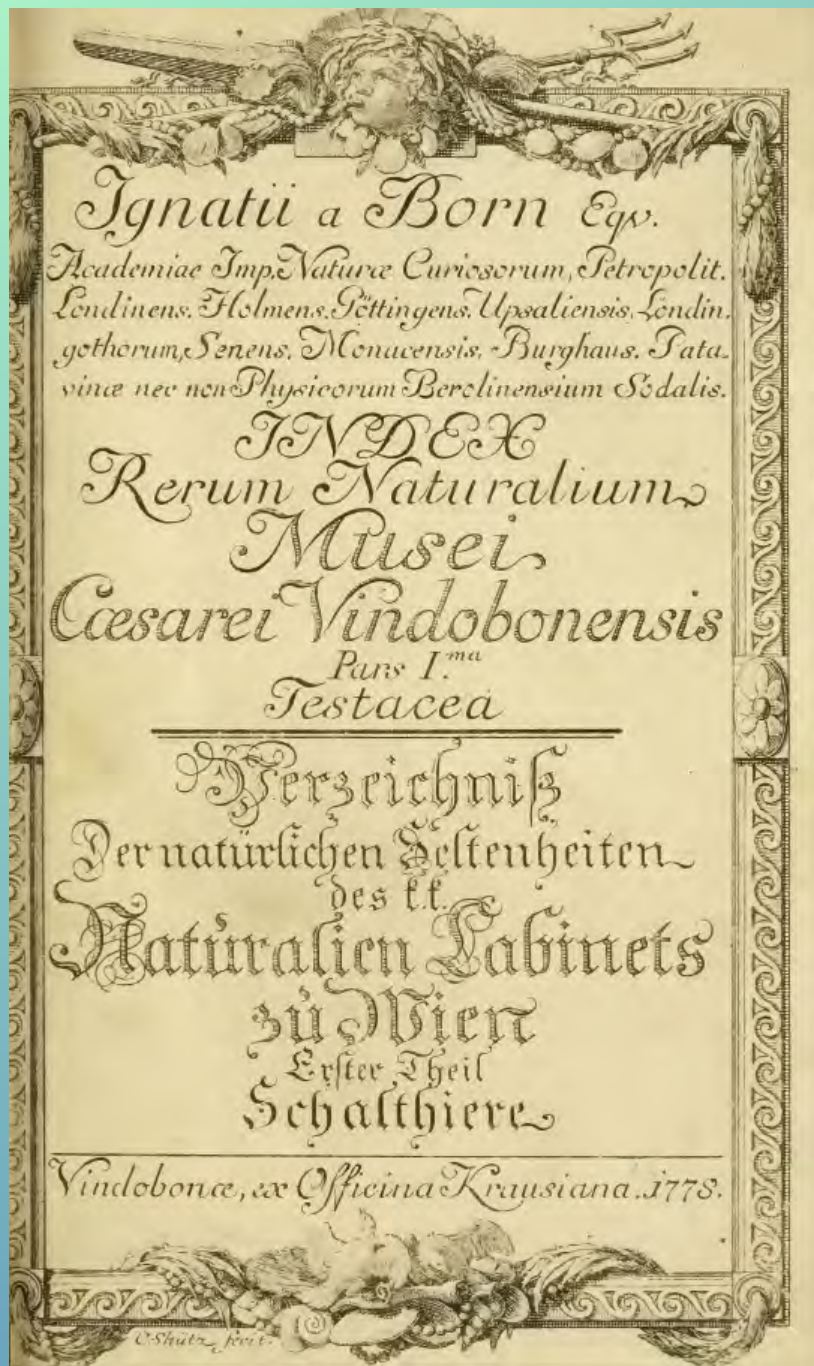 Ignatii a Born Eqv.
Academiae Imp. Naturæ Curiosorum, Petropolit.
Londinens. Holmens. Göttingens. Upsaliensis. Londin.
gothorum, Senens. Monacensis. Burghaus. Pata-
vinæ nec non Physicorum Berolinensium Sodalis.
INDEX
Rerum Naturalium
Musei
Cæsarei Vindobonensis
Pars I.ma
Testacea
Verzeichniß
Der natürlichen Seltenheiten
des k.k.
Naturalien Cabinets
zu Wien
Erster Theil
Schalthiere
Vindobonæ, ex Officina Krausiana. 1778.
C. Shütz fecit.